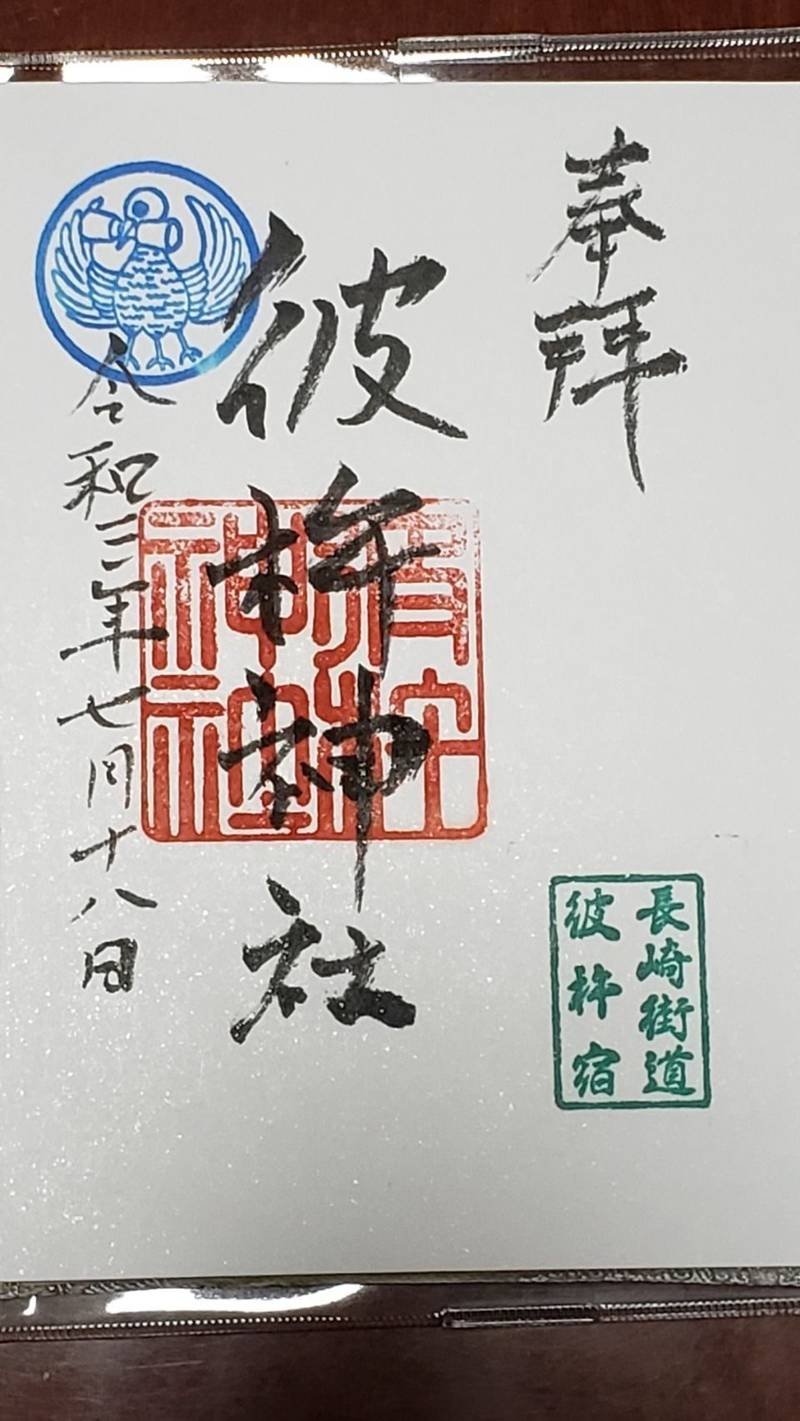 奉拝
長崎街道
彼杵宿
彼杵神社
令和三年七月十八日